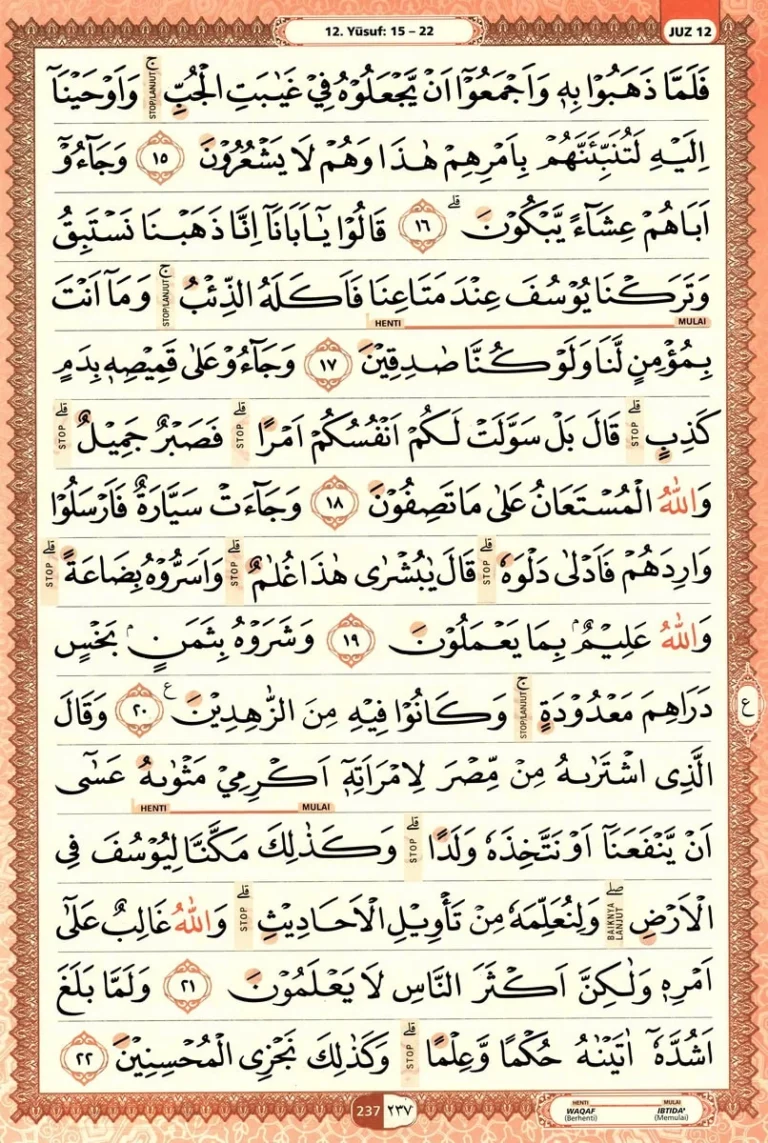 12. Yūsuf: 15 – 22
JUZ 12
فَلَمَّا ذَهَبُوْا بِهٖ وَاَجْمَعُوْٓا اَنْ يَّجْعَلُوْهُ فِيْ غَيٰبَتِ الْجُبِّۚ وَاَوْحَيْنَآ
STOP/LANJUT
اِلَيْهِ لَتُنَبِّئَنَّهُمْ بِاَمْرِهِمْ هٰذَا وَهُمْ لَا يَشْعُرُوْنَ ١٥ وَجَاۤءُوْٓ
اَبَاهُمْ عِشَاۤءً يَّبْكُوْنَۗ ١٦ قَالُوْا يٰٓاَبَانَآ اِنَّا ذَهَبْنَا نَسْتَبِقُ
وَتَرَكْنَا يُوْسُفَ عِنْدَ مَتَاعِنَا فَاَكَلَهُ الذِّئْبُۚ وَمَآ اَنْتَ
STOP/LANJUT
HENTI MULAI
بِمُؤْمِنٍ لَّنَا وَلَوْ كُنَّا صٰدِقِيْنَ ١٧ وَجَاۤءُوْ عَلٰى قَمِيْصِهٖ بِدَمٍ
كَذِبٍۗ قَالَ بَلْ سَوَّلَتْ لَكُمْ اَنْفُسُكُمْ اَمْرًاۗ فَصَبْرٌ جَمِيْلٌۗ
STOP STOP STOP
وَاللّٰهُ الْمُسْتَعَانُ عَلٰى مَا تَصِفُوْنَ ١٨ وَجَاۤءَتْ سَيَّارَةٌ فَاَرْسَلُوْا
وَارِدَهُمْ فَاَدْلٰى دَلْوَهٗۗ قَالَ يٰبُشْرٰى هٰذَا غُلٰمٌۗ وَاَسَرُّوْهُ بِضَاعَةًۗ
STOP STOP STOP
وَاللّٰهُ عَلِيْمٌۢ بِمَا يَعْمَلُوْنَ ١٩ وَشَرَوْهُ بِثَمَنٍۢ بَخْسٍ
دَرَاهِمَ مَعْدُوْدَةٍۚ وَكَانُوْا فِيْهِ مِنَ الزّٰهِدِيْنَ ࣖ ٢٠ وَقَالَ
STOP/LANJUT
ع
الَّذِى اشْتَرٰىهُ مِنْ مِّصْرَ لِامْرَاَتِهٖٓ اَكْرِمِيْ مَثْوٰىهُ عَسٰٓى
HENTI MULAI
اَنْ يَّنْفَعَنَآ اَوْ نَتَّخِذَهٗ وَلَدًاۗ وَكَذٰلِكَ مَكَّنَّا لِيُوْسُفَ فِى
STOP
الْاَرْضِۖ وَلِنُعَلِّمَهٗ مِنْ تَأْوِيْلِ الْاَحَادِيْثِۗ وَاللّٰهُ غَالِبٌ عَلٰٓى
BAIKNYA LANJUT STOP
اَمْرِهٖ وَلٰكِنَّ اَكْثَرَ النَّاسِ لَا يَعْلَمُوْنَ ٢١ وَلَمَّا بَلَغَ
اَشُدَّهٗٓ اٰتَيْنٰهُ حُكْمًا وَّعِلْمًاۗ وَكَذٰلِكَ نَجْزِى الْمُحْسِنِيْنَ ٢٢
STOP
237 ٢٣٧
HENTI MULAI
WAQAF IBTIDA'
(Berhenti) (Memulai)